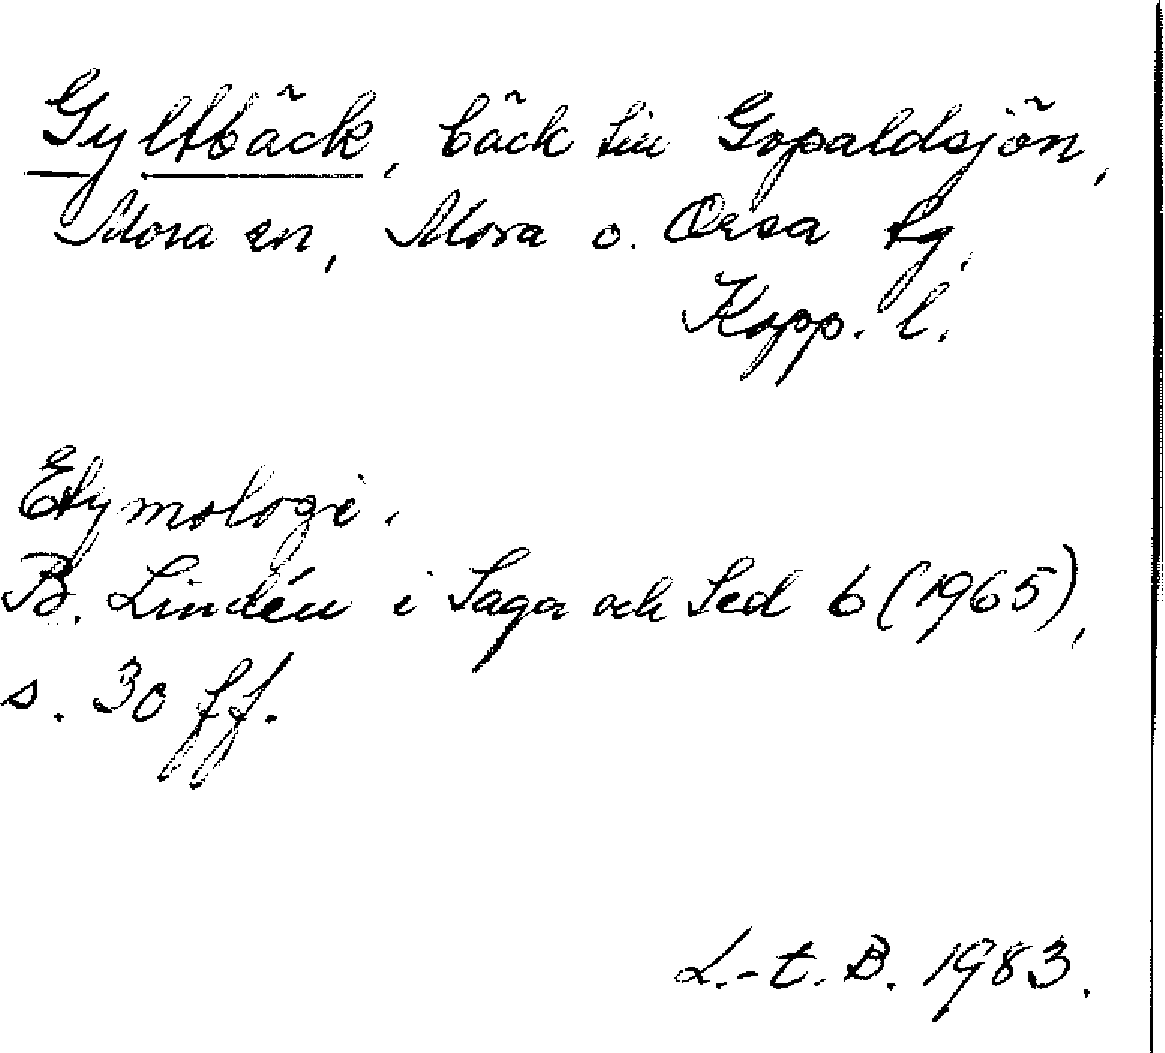 Gyltbäck, bäck till Gopaldsjön,
Mora sn, Mora o. Orsa tg,
Kopp. l.
Etymologi.
B. Lindén i Saga och Sed 6 (1965),
s. 30 ff.
L.-t. B. 1983.